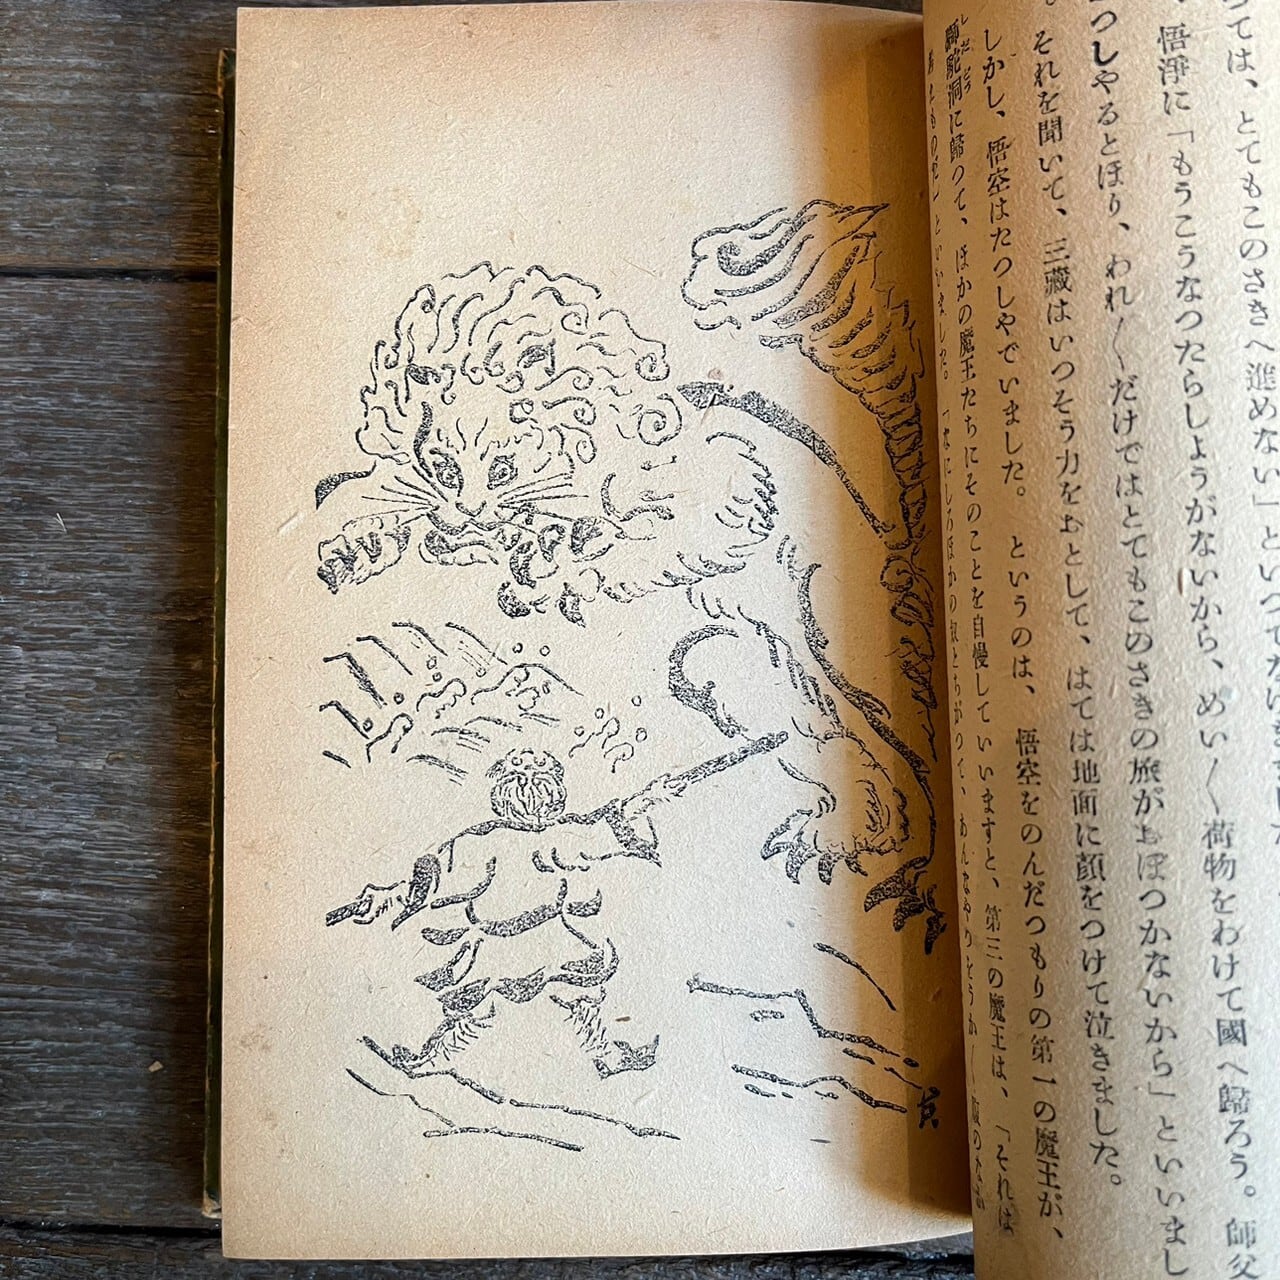 つては、とてもこのさきへ進めない」といつてなげきました
、悟淨に「もうこうなつたらしようがないから、めい〳〵荷物をわけて國へ歸ろう。師父
つしやるとほり、われ〳〵だけではとてもこのさきの旅がおぼつかないから」といいまし
。それを聞いて、三藏はいつそう力をおとして、はては地面に顏をつけて泣きました。
しかし、悟空はたつしやでいました。というのは、悟空をのんだつもりの第一の魔王が、
獅駝洞に歸つて、ほかの魔王たちにそのことを自慢していいますと、第三の魔王は、「それは
といいました。「なにしろほかの奴とちがつて、あんな